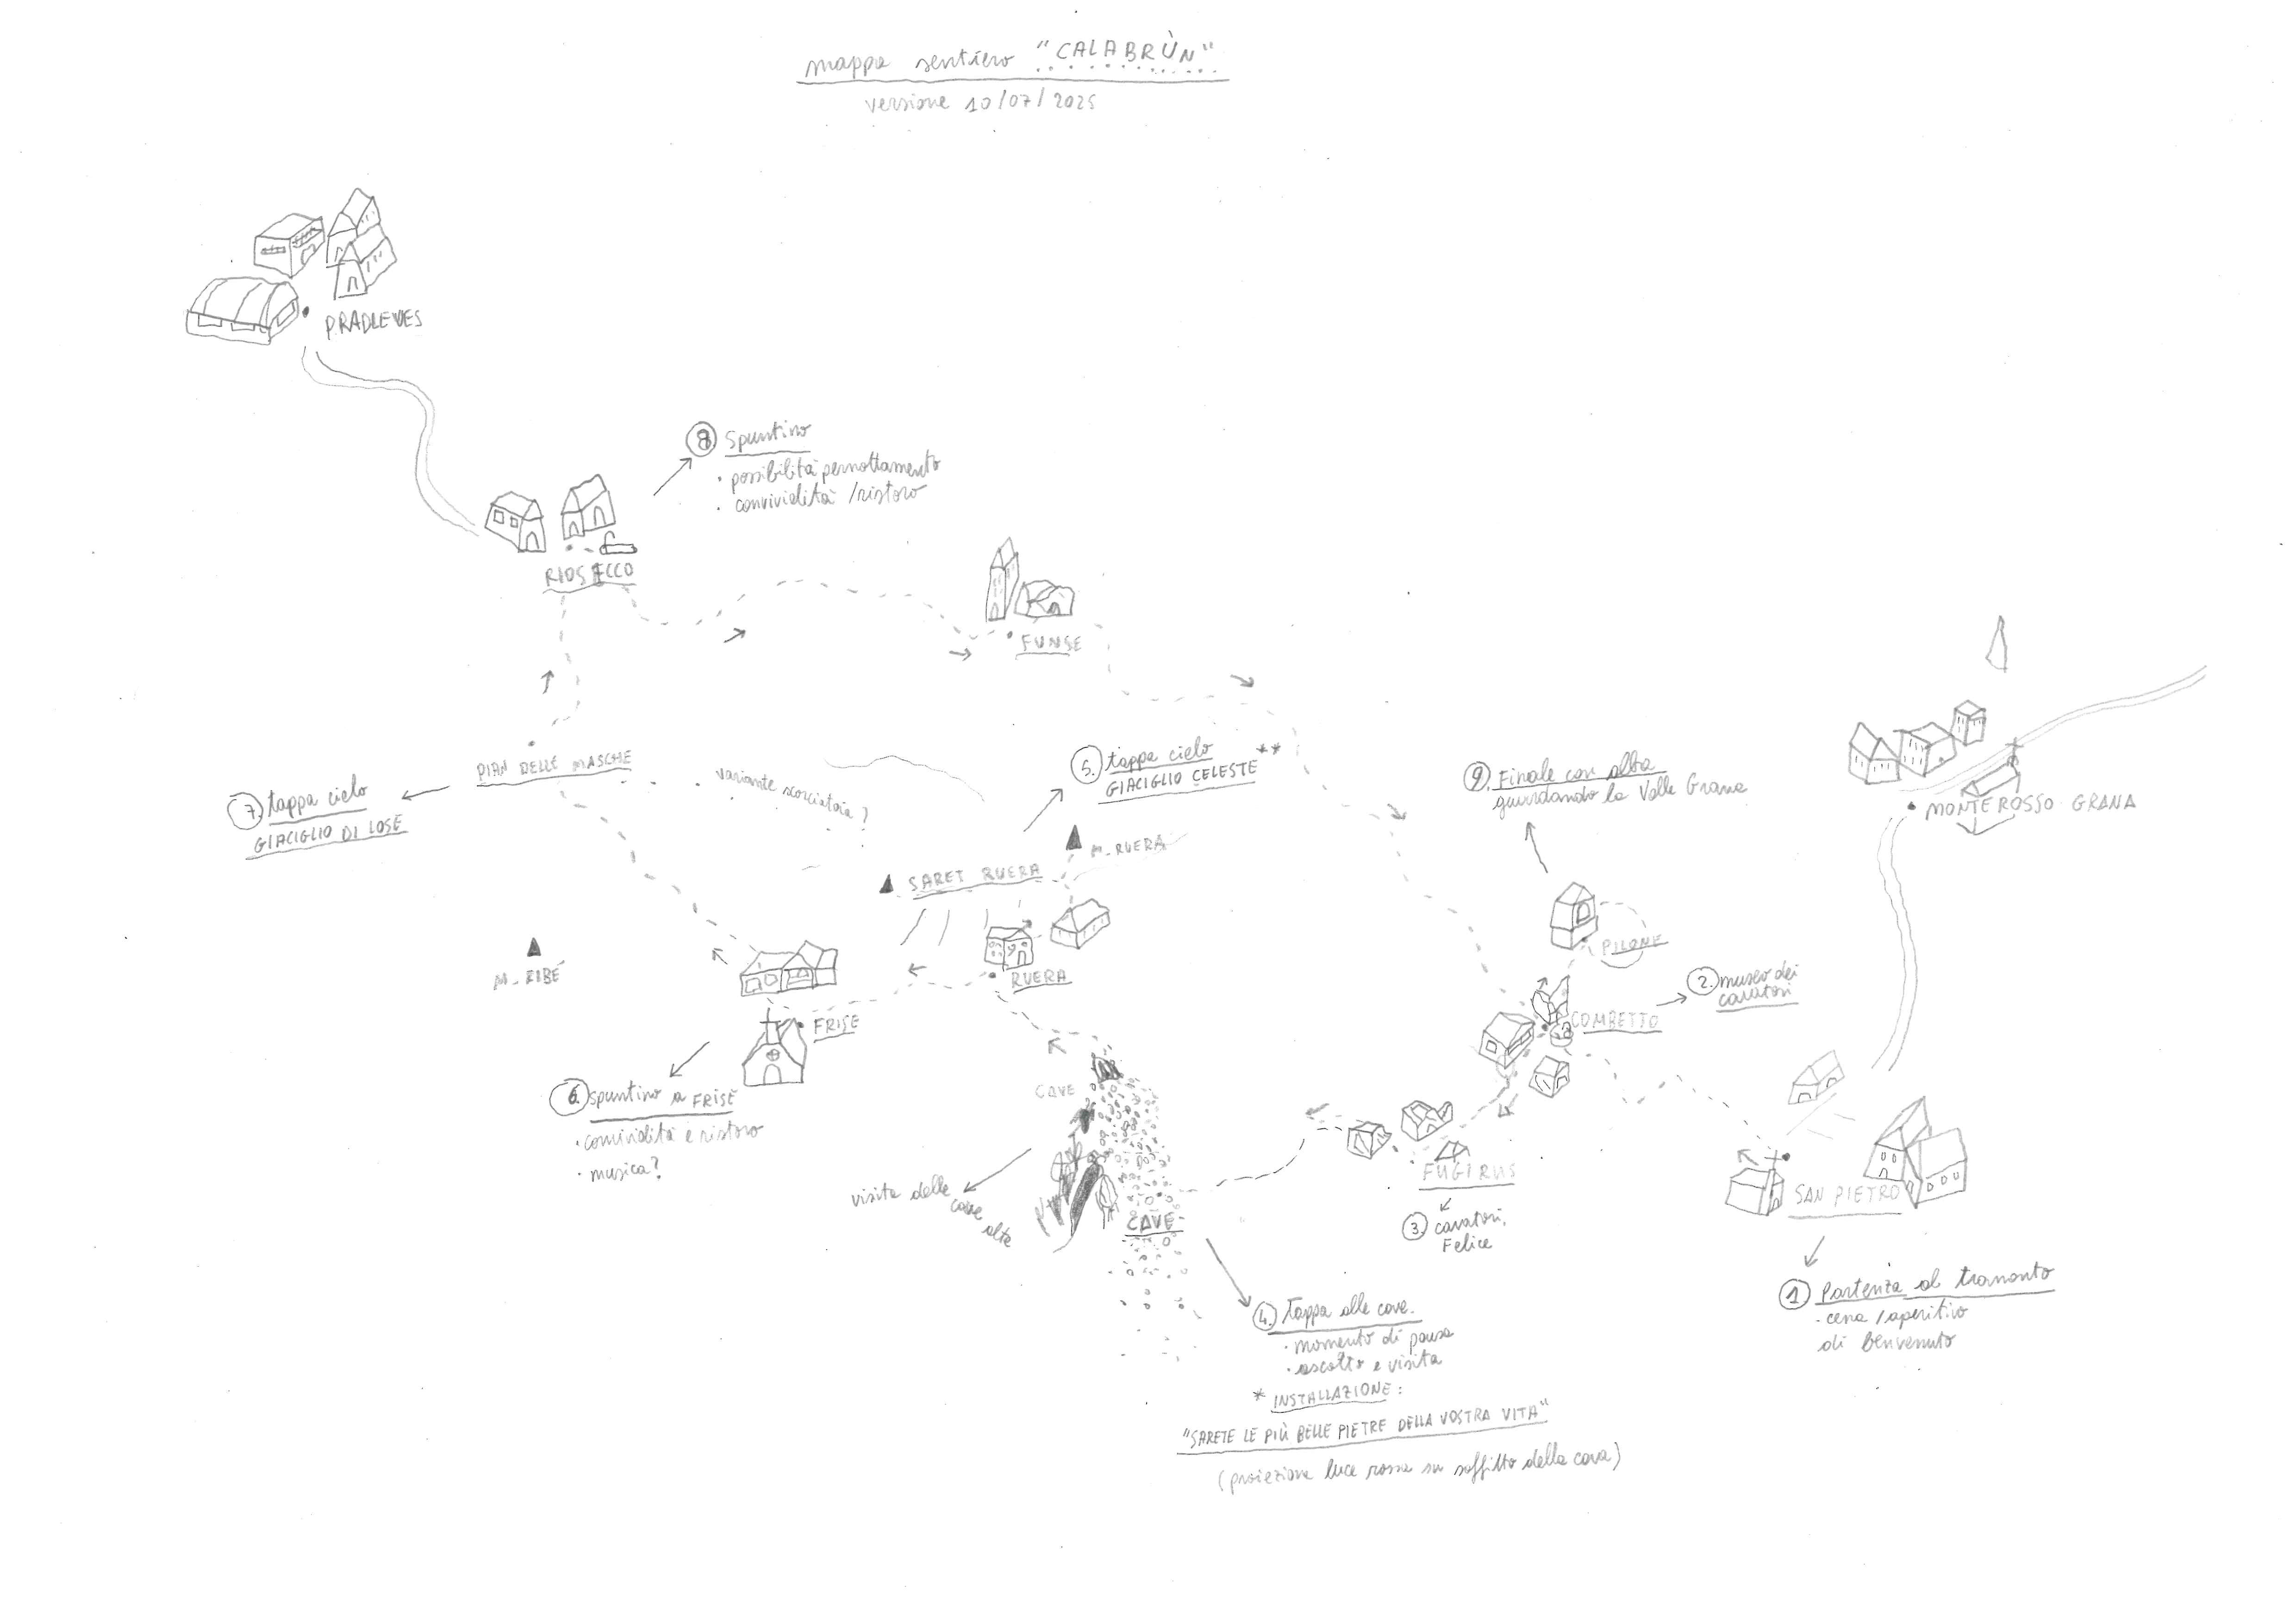 mappa sentiero "CALABRÙN"
versione 10/07/2025
PRADLEVES
8 Spuntino
• possibilità pernottamento
• convivialità / ristoro
RIOSECCO
FUNSE
PIAN DELLE MASCHE
variante scorciatoia?
7. tappa cielo
GIACIGLIO DI LOSE
5. tappa cielo **
GIACIGLIO CELESTE
M. RUERA
SARET RUERA
9. Finale con alba
guardando la Valle Grana
MONTEROSSO GRANA
PILONE
M. RIBÉ
RUERA
2. museo dei
cavatori
COMBETTO
FRISE
6. spuntino a FRISE
• convivialità e ristoro
• musica?
CAVE
visita delle
cave
alte
CAVE
FUGIRUS
3 cavatori,
Felice
SAN PIETRO
1 Partenza al tramonto
- cena / aperitivo
di benvenuto
4. Tappa alle cave.
• momento di pausa
• ascolto e visita
* INSTALLAZIONE:
"SARETE LE PIÙ BELLE PIETRE DELLA VOSTRA VITA"
(proiezione luce rossa su soffitto della cava)